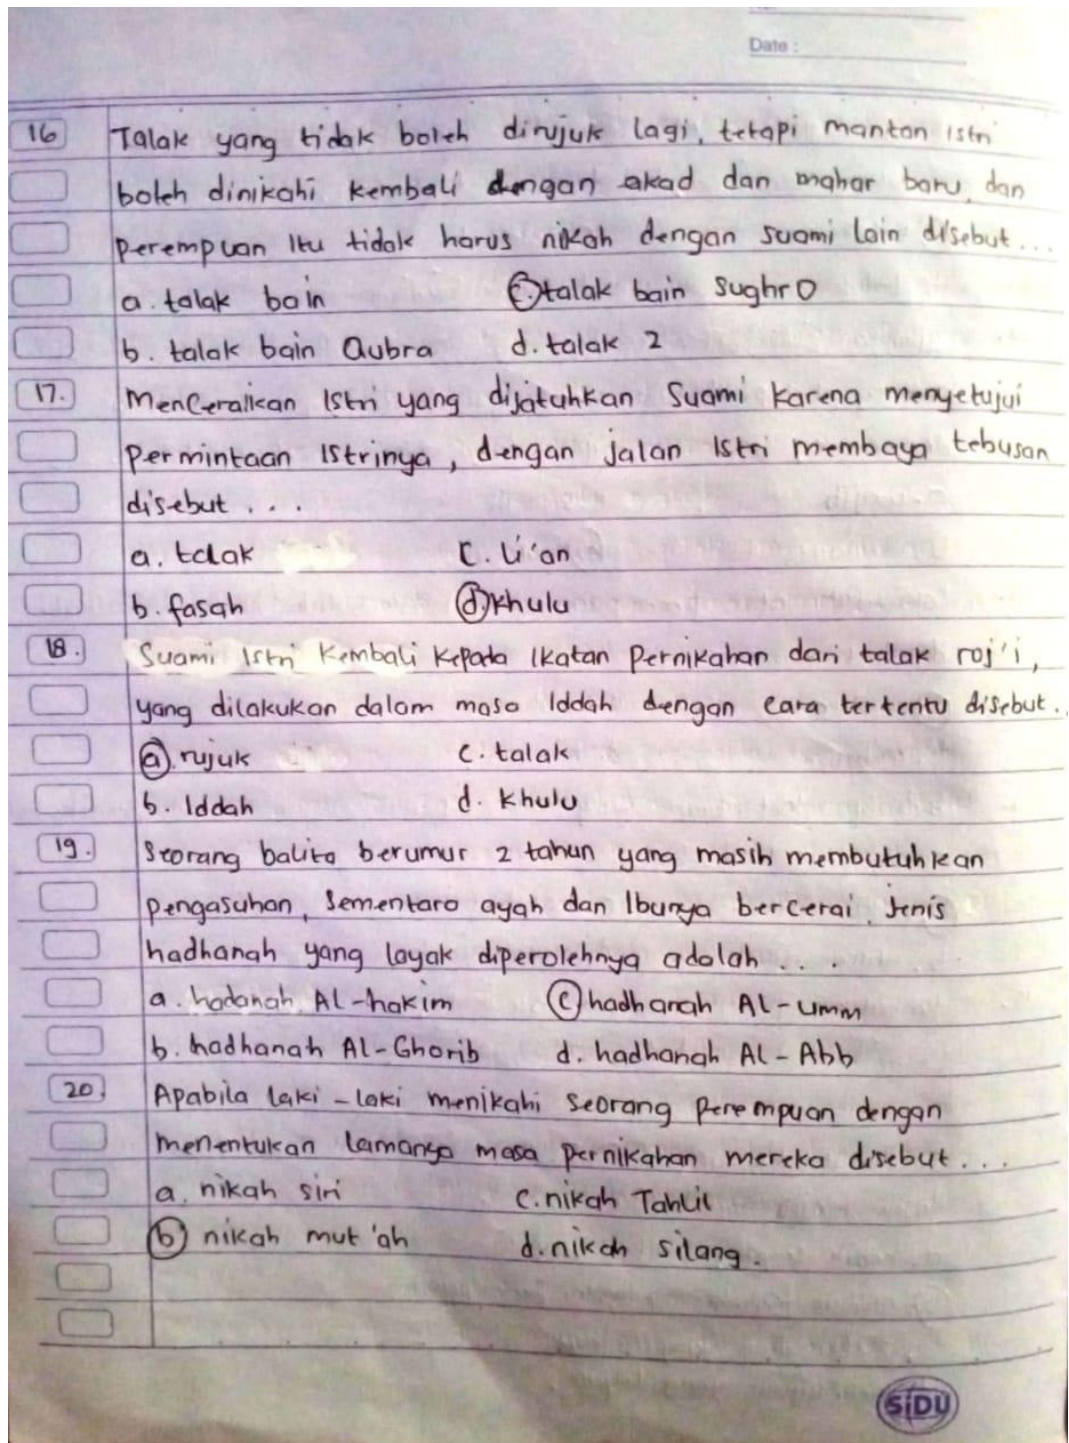 Date :
16 Talak yang tidak boleh dirujuk lagi, tetapi mantan istri
boleh dinikahi kembali dengan akad dan mahar baru, dan
perempuan itu tidak harus nikah dengan suami lain disebut ...
a. talak bain c. talak bain sughro
b. talak bain Qubra d. talak 2
17. Menceraikan Istri yang dijatuhkan Suami karena menyetujui
permintaan Istrinya, dengan jalan Istri membaya tebusan
disebut ...
a. talak c. li'an
b. fasah d. khulu
18. Suami Istri Kembali kepada Ikatan Pernikahan dari talak roj'i,
yang dilakukan dalam masa Iddah dengan cara tertentu disebut..
a. rujuk c. talak
b. Iddah d. khulu
19. Seorang balita berumur 2 tahun yang masih membutuhkan
pengasuhan, sementara ayah dan Ibunya bercerai. Jenis
hadhanah yang layak diperolehnya adalah ...
a. hadanah Al-hakim c hadhanah Al-umm
b. hadhanah Al-Ghorib d. hadhanah Al-Abb
20. Apabila laki-laki menikahi seorang perempuan dengan
menentukan lamanya masa pernikahan mereka disebut ...
a. nikah siri c. nikah Tahlil
b nikah mut'ah d. nikah silang.
SiDU